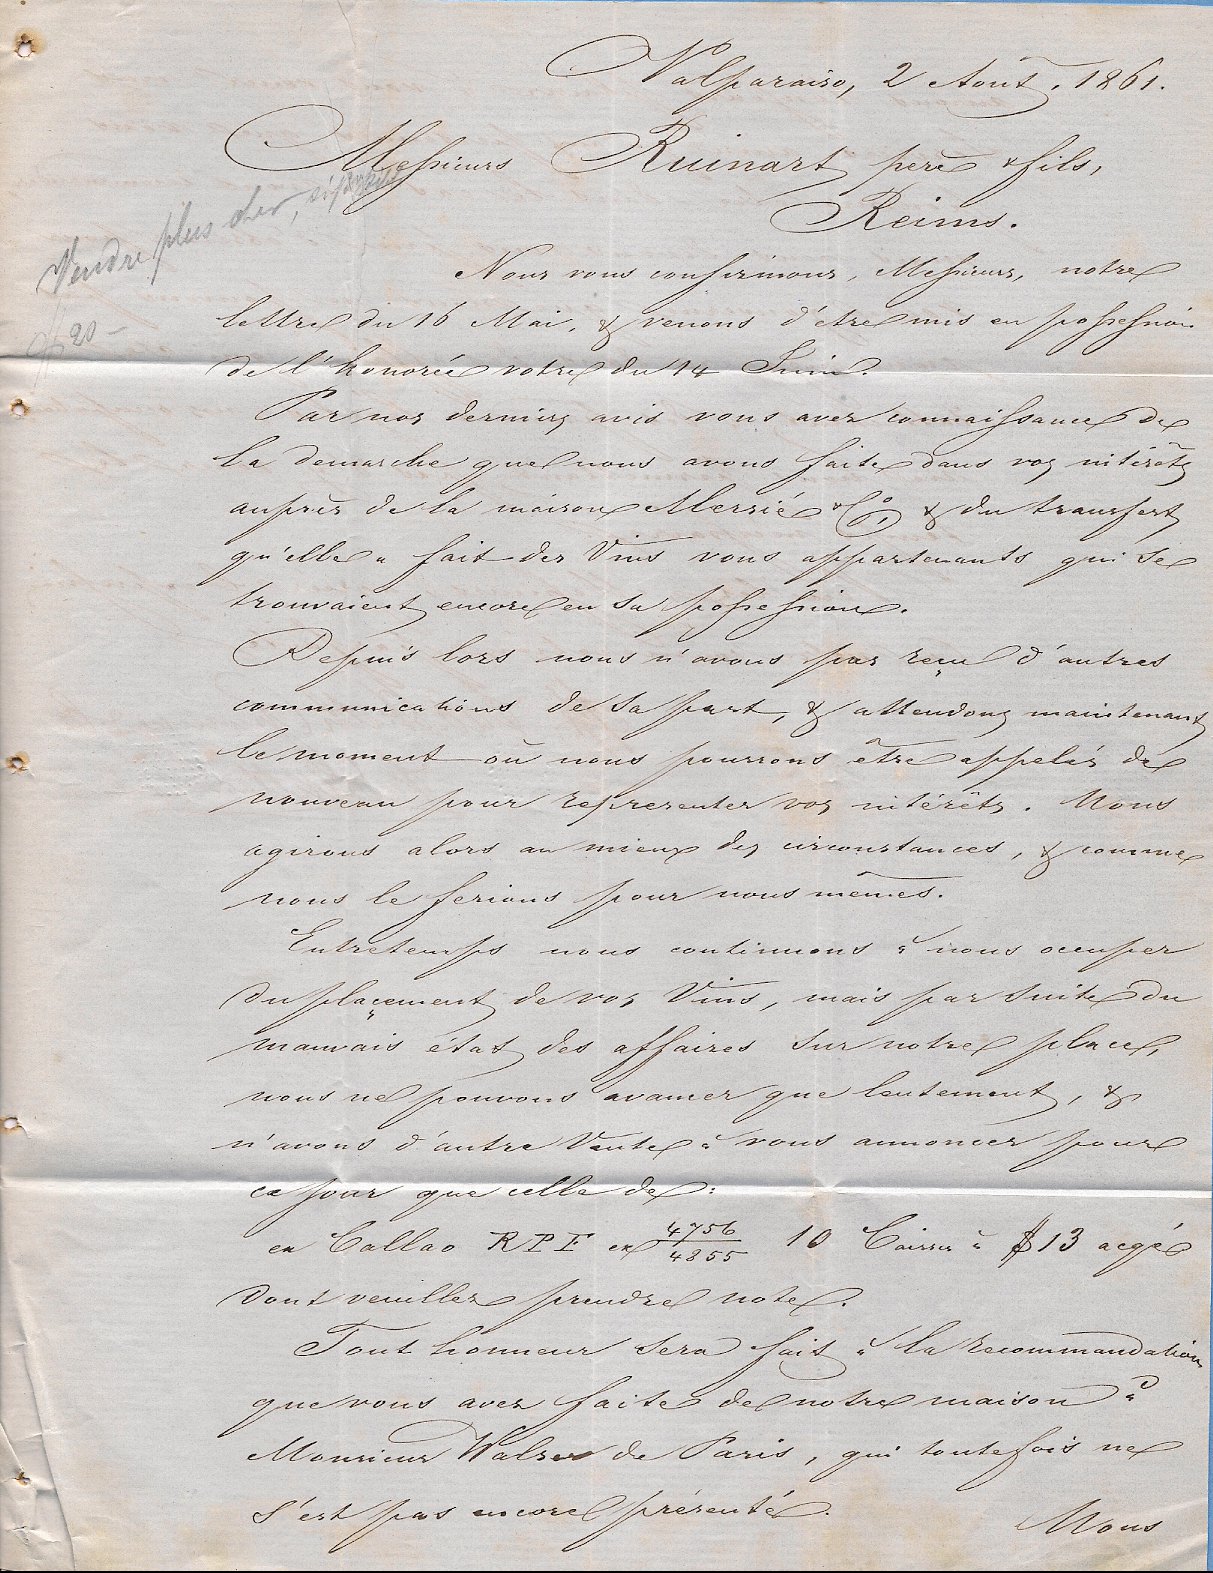 Valparaiso, 2 Août, 1861.
Messieurs Ruinart père & fils,
Reims.
Vendre plus cher, si possible
$ 20 –
Nous vous confirmons, Messieurs, notre
lettre du 16 Mai, & venons d'être mis en possession
de l'honorée votre du 14 Juin.
Par nos derniers avis vous avez connaissance de
la demarche que nous avons faite dans vos intérêts
auprès de la maison & Co, & du transfert
qu'elle a fait des Vins vous appartenants qui se
trouvaient encore en sa possession.
Depuis lors nous n'avons pas reçu d'autres
communications de sa part, & attendons maintenant
le moment où nous pourrons être appelés de
nouveau pour representer vos intérêts. Nous
agirons alors au mieux des circonstances, & comme
nous le ferions pour nous mêmes.
Entretemps nous continuons à nous occuper
du plaçement de vos Vins, mais par suite du
mauvais état des affaires sur notre place,
nous ne pouvons avancer que lentement, &
n'avons d'autre Vente à vous annoncer pour
ce jour que celle de:
en Callao RPF ex 4756/4855 10 Caisses à $13 acqé
dont veuillez prendre note.
Tout honneur sera fait à la recommandation
que vous avez faite de notre maison à
Monsieur de Paris, qui toutefois ne
s'est pas encore présenté.
Nous